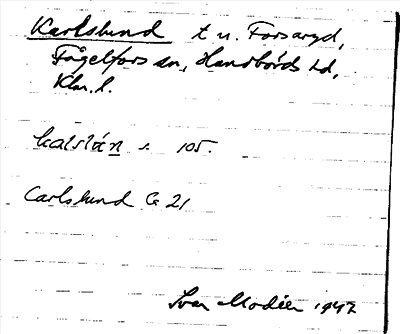 Karlslund t u. Forsaryd,
Fågelfors sn, Handbörds hd,
Klm. l.
kalslán s. 105.
Carlslund G 21
Ivar Modéer 1942